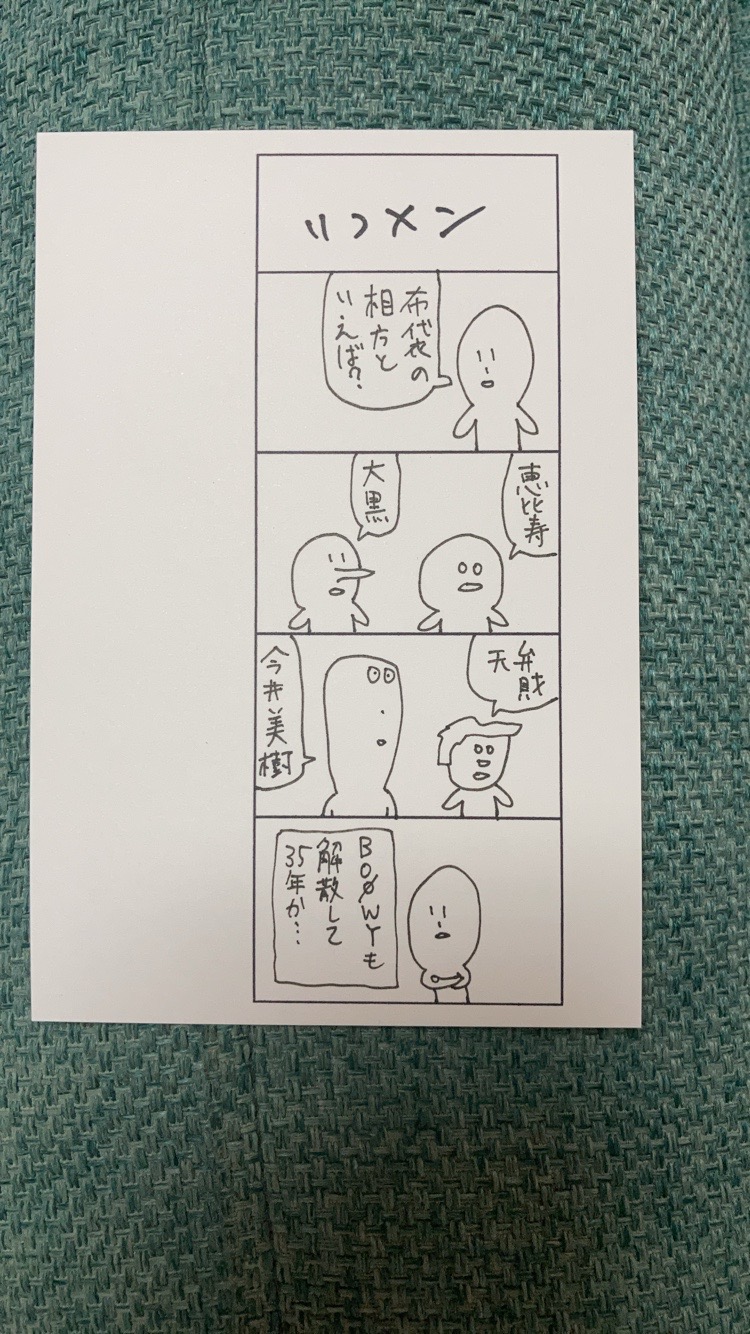 いつメン
布袋の
相方と
いえば?
恵比寿
大黒
弁財
天
今井美樹
BOØWYも
解散して
35年か…